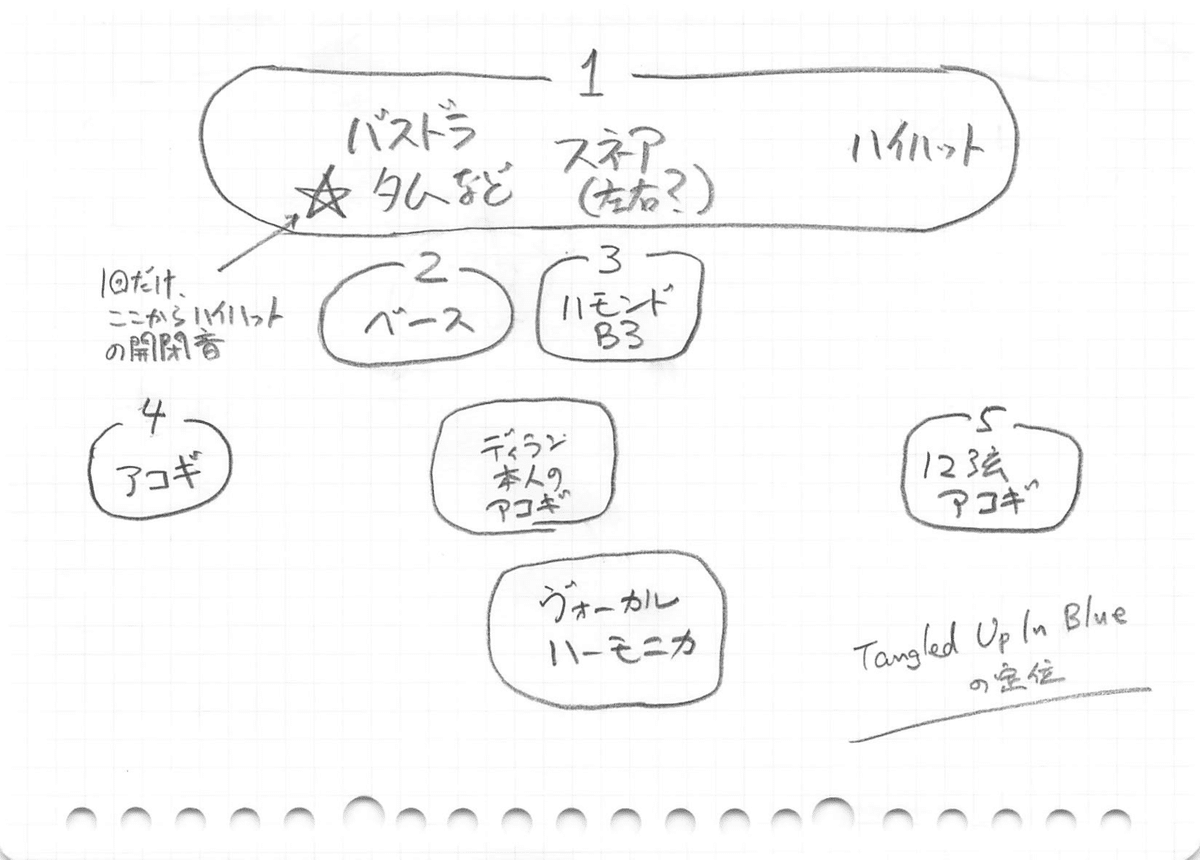 1
バスドラ
スネア
ハイハット
☆ タムなど
(左右?)
1回だけ、
ここからハイハット
の開閉音
2
ベース
3
ハモンド
B3
4
アコギ
ディラン
本人の
アコギ
5
12弦
アコギ
ヴォーカル
ハーモニカ
Tangled Up In Blue
の定位